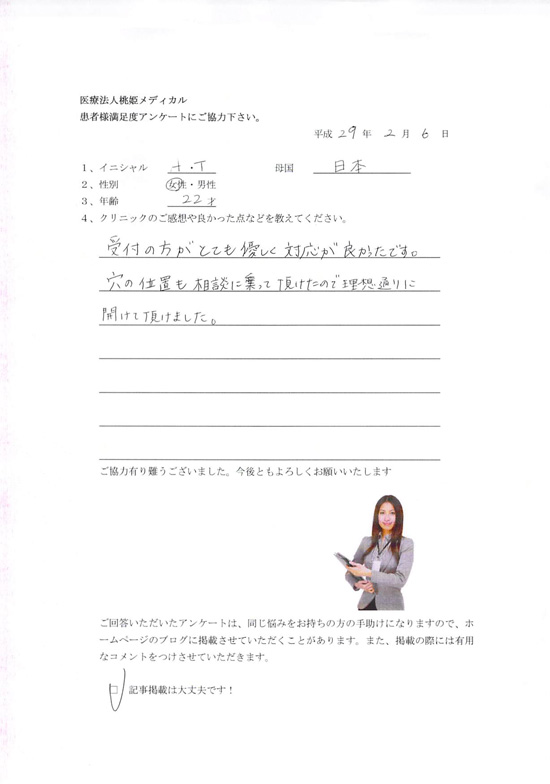 医療法人桃姫メディカル
患者様満足度アンケートにご協力下さい。
平成 29 年 2 月 6 日
1、イニシャル t・T 母国 日本
2、性別 女性・男性
3、年齢 22才
4、クリニックのご感想や良かった点などを教えてください。
受付の方がとても優しく対応が良かったです。
穴の位置も相談に乗って頂けたので理想通りに
開けて頂けました。
ご協力有り難うございました。今後ともよろしくお願いいたします
ご回答いただいたアンケートは、同じ悩みをお持ちの方の手助けになりますので、ホ
ームページのブログに掲載させていただくことがあります。また、掲載の際には有用
なコメントをつけさせていただきます。
□ 記事掲載は大丈夫です！